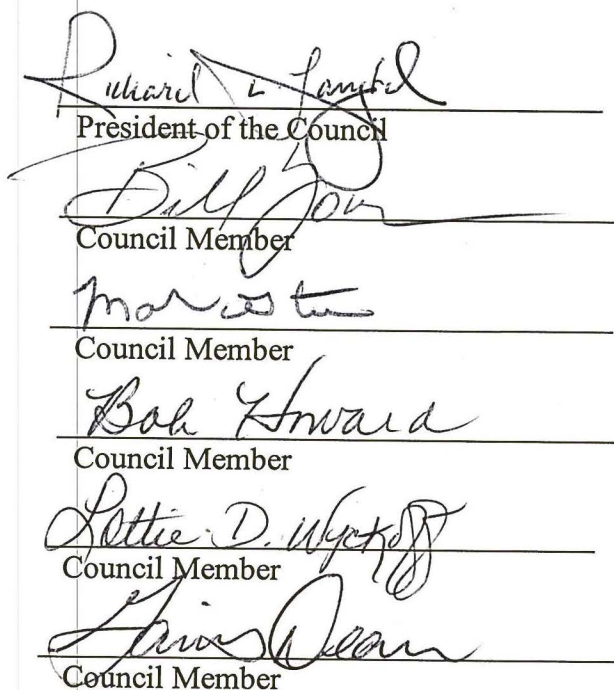 Richard L
President of the Council
Bill
Council Member
Council Member
Bob Howard
Council Member
Lottie D. Wyckoff
Council Member
Dean
Council Member